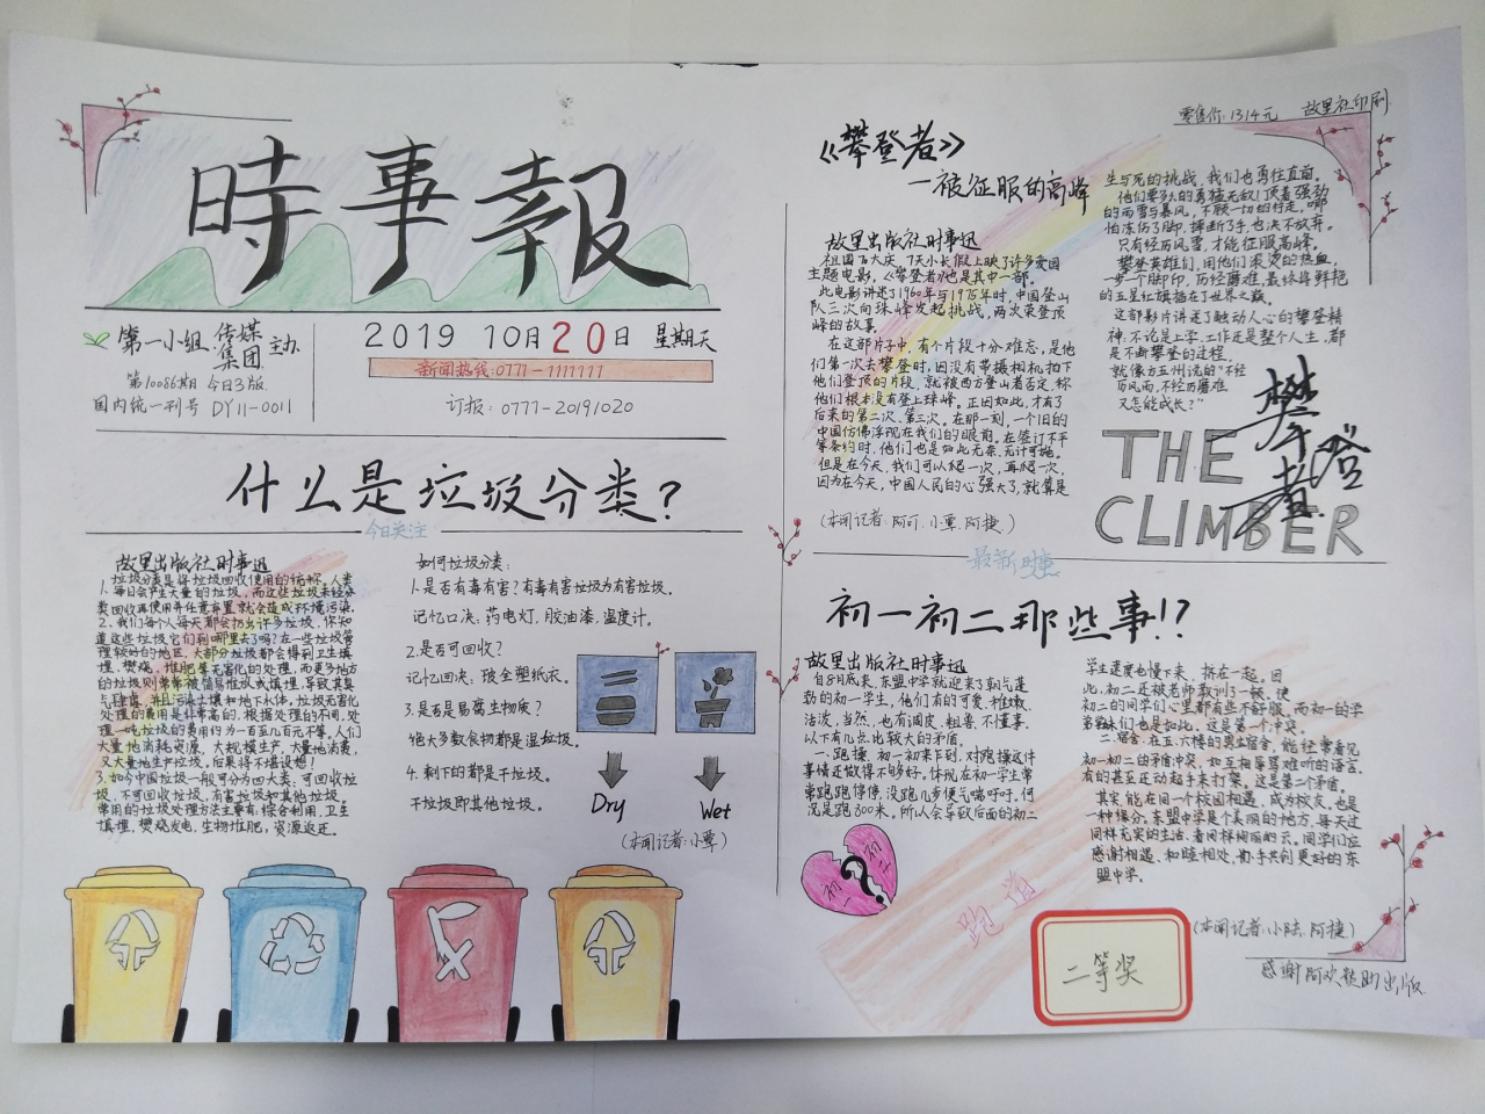 零售价:1314元 故里社印刷
時事報
第一小组.传媒集团 主办
第10086期 今日3版.
国内统一刊号 DY11-0011
2019 10月20日 星期天
新闻热线:0771-1111111
订报:0777-20191020
什么是垃圾分类?
今日关注
故里出版社时事迅
1.垃圾分类是将垃圾回收使用的统称.人类
每日会产生大量的垃圾,而这些垃圾未经分
类回收再使用并任意弃置就会造成环境污染.
2.我们每个人每天都会扔出许多垃圾,你知
道这些垃圾它们到哪里去了吗?在一些垃圾管
理较好的地区,大部分垃圾都会得到卫生填
埋、焚烧、堆肥等无害化的处理,而更多地方
的垃圾则常常被简易堆放或填埋,导致其臭
气肆虐,并且污染土壤和地下水体,垃圾无害化
处理的费用是非常高的,根据处理的不同,处
理一吨垃圾的费用约为一百至几百元不等.人们
大量地消耗资源,大规模生产,大量地消费,
又大量地生产垃圾.后果将不堪设想!
3.如今中国垃圾一般可分为四大类:可回收垃
圾、不可回收垃圾,有害垃圾和其他垃圾.
常用的垃圾处理方法主要有:综合利用,卫生
填埋,焚烧发电,生物堆肥,资源返还.
如何垃圾分类:
1.是否有毒有害?有毒有害垃圾为有害垃圾.
记忆口决:药电灯,胶油漆,温度计.
2.是否可回收?
记忆口决:玻金塑纸衣.
3.是否是易腐生物质?
绝大多数食物都是湿垃圾.
4.剩下的都是干垃圾.
干垃圾即其他垃圾.
Dry
Wet
(本闻记者:小覃)
《攀登者》
—被征服的高峰
故里出版社时事迅
祖国百大庆,7天小长假上映了许多爱国
主题电影,《攀登者》也是其中一部.
此电影讲述了1960年与1975年时,中国登山
队三次向珠峰发起挑战,两次荣登顶
峰的故事.
在这部片子中,有个片段十分难忘,是他
们第一次去攀登时,因没有带摄相机拍下
他们登顶的片段,就被西方登山者否定,称
他们根本没有登上珠峰。正因如此,才有了
后来的第二次、第三次。在那一刻,一个旧的
中国仿佛浮现在我们的眼前。在签订不平
等条约时,他们也是如此无奈、无计可施。
但是在今天,我们可以绝一次,再绝一次,
因为在今天,中国人民的心强大了,就算是
(本闻记者:阿可.小覃.阿捷.)
生与死的挑战,我们也勇往直前。
他们要多么的勇猛无敌!顶着强劲
的雨雪与暴风,不顾一切的行走。哪
怕冻伤了脚,摔断了手,也决不放弃。
只有经历风雪,才能征服高峰。
攀登英雄们,用他们滚烫的热血,
一步一个脚印,历经磨难,最终将鲜艳
的五星红旗插在了世界之巅。
这部影片讲述了触动人心的攀登精
神:不论是上学、工作还是整个人生,都
是不断攀登的过程.
就像方五州说的"不经
历风雨,不经历磨难
又怎能成长?"
攀登者
THE
CLIMBER
最新时事
初一初二那些事!?
故里出版社时事迅
自8月底来,东盟中学就迎来了朝气蓬
勃的初一学生,他们有的可爱、稚嫩、
活泼,当然,也有调皮、粗鲁、不懂事.
以下有几点比较大的矛盾。
一.跑操,初一初来乍到,对跑操这件
事情还做得不够好,体现在初一学生常
常跑跑停停,没跑几步便气喘吁吁,何
况是跑800米。所以会导致后面的初二
学生速度也慢下来,挤在一起。因
此,初二还被老师教训了一顿,使
初二的同学们心里都有些不舒服,而初一的学
弟学妹们也是如此。这是第一个冲突。
二.宿舍,在五、六楼的男生宿舍,能经常看见
初一初二的矛盾冲突,如互相辱骂难听的语言.
有的甚至还动起手来打架。这是第二个矛盾。
其实,能在同一个校园相遇,成为校友,也是
一种缘分,东盟中学是个美丽的地方,每天过
同样充实的生活,看同样绚丽的云。同学们应
感谢相遇、和睦相处,携手共创更好的东
盟中学。
初一 初二
跑道
(本闻记者:小陆.阿捷)
二等奖
感谢阿欢赞助出版.